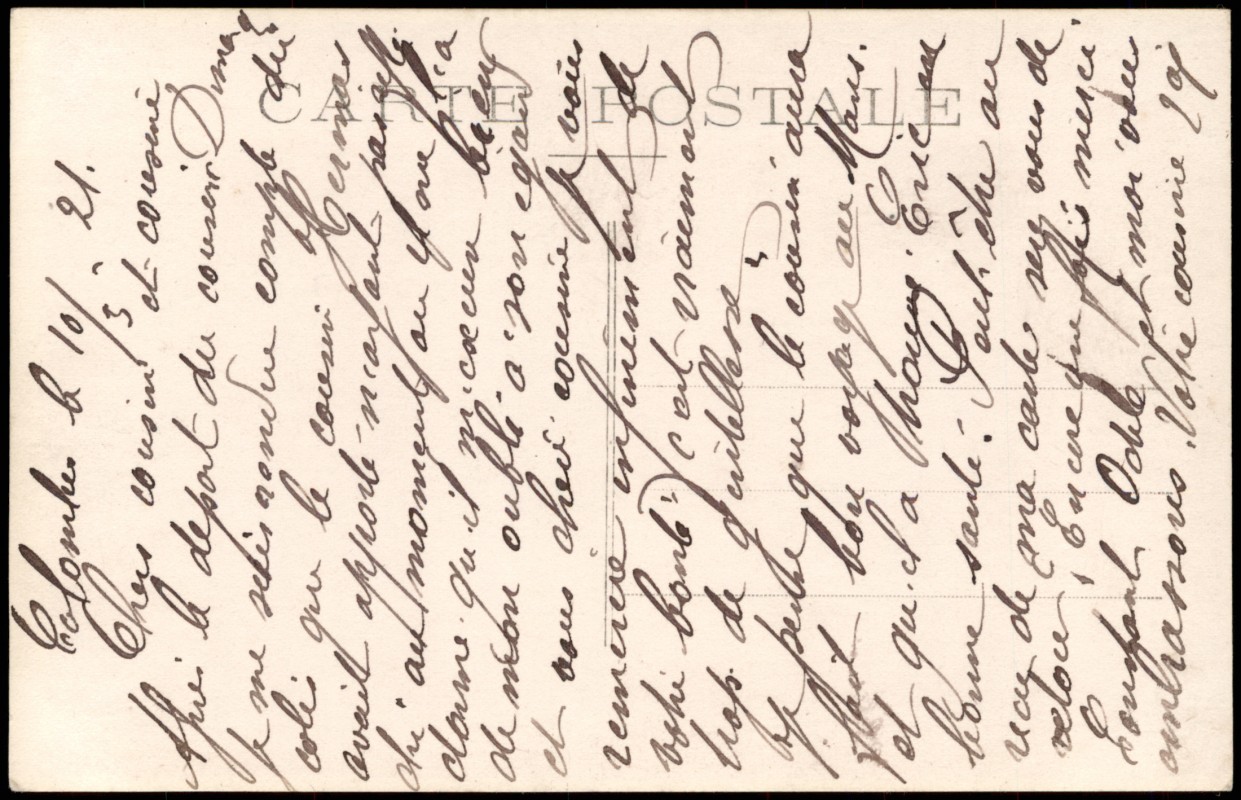 CARTE POSTALE
Colombes le 10/5 21.
Chers cousin et cousine
Après le départ du cousin
je me suis rendue compte du
colis que le cousin
avait apporté m'ayant pas
au moment ou et ne l'a
donne. qu'il m'excuse bien
de mon oubli à son égard
et vous chère cousine je vous
remercie infiniment de
votre bonté c'est vraiment
trop de gentillesse
J'espère que le cousin aura
fait bon voyage au Mans.
et qu'il a trouvé Eric en
bonne santé. Peut être au
reçu de ma carte serez vous de
retour. Encore une fois merci
Mr vous
embrassons. Votre cousine